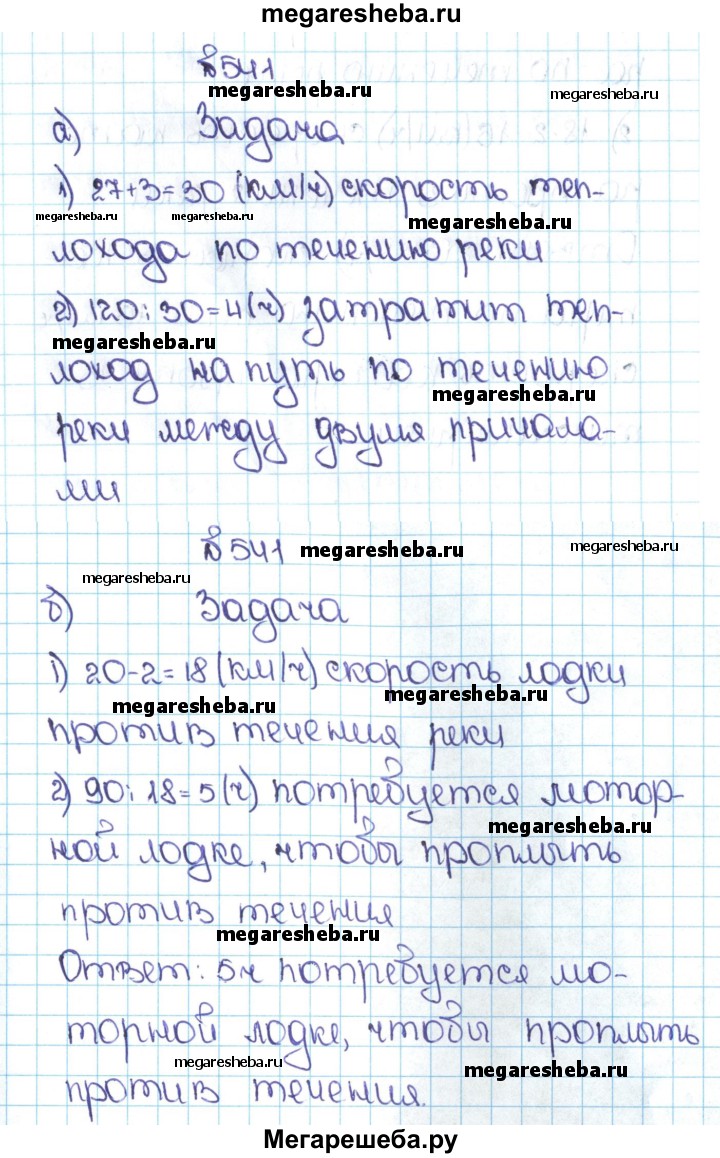 megaresheba.ru
№541
megaresheba.ru
megaresheba.ru
а) Задача
1) 27+3=30 (км/ч) скорость теп-
megaresheba.ru megaresheba.ru megaresheba.ru
лохода по течению реки
2) 120:30=4(ч) затратит теп-
megaresheba.ru
лоход на путь по течению
megaresheba.ru
реки между двумя причала-
ми
№541 megaresheba.ru megaresheba.ru
megaresheba.ru
б) Задача
1) 20-2=18 (км/ч) скорость лодки
megaresheba.ru megaresheba.ru
против течения реки
2) 90:18=5(ч) потребуется мотор-
megaresheba.ru
ной лодке, чтобы проплыть
против течения
megaresheba.ru
Ответ: 5ч потребуется мо-
торной лодке, чтобы проплыть
megaresheba.ru megaresheba.ru
против течения.
Мегарешеба.ру